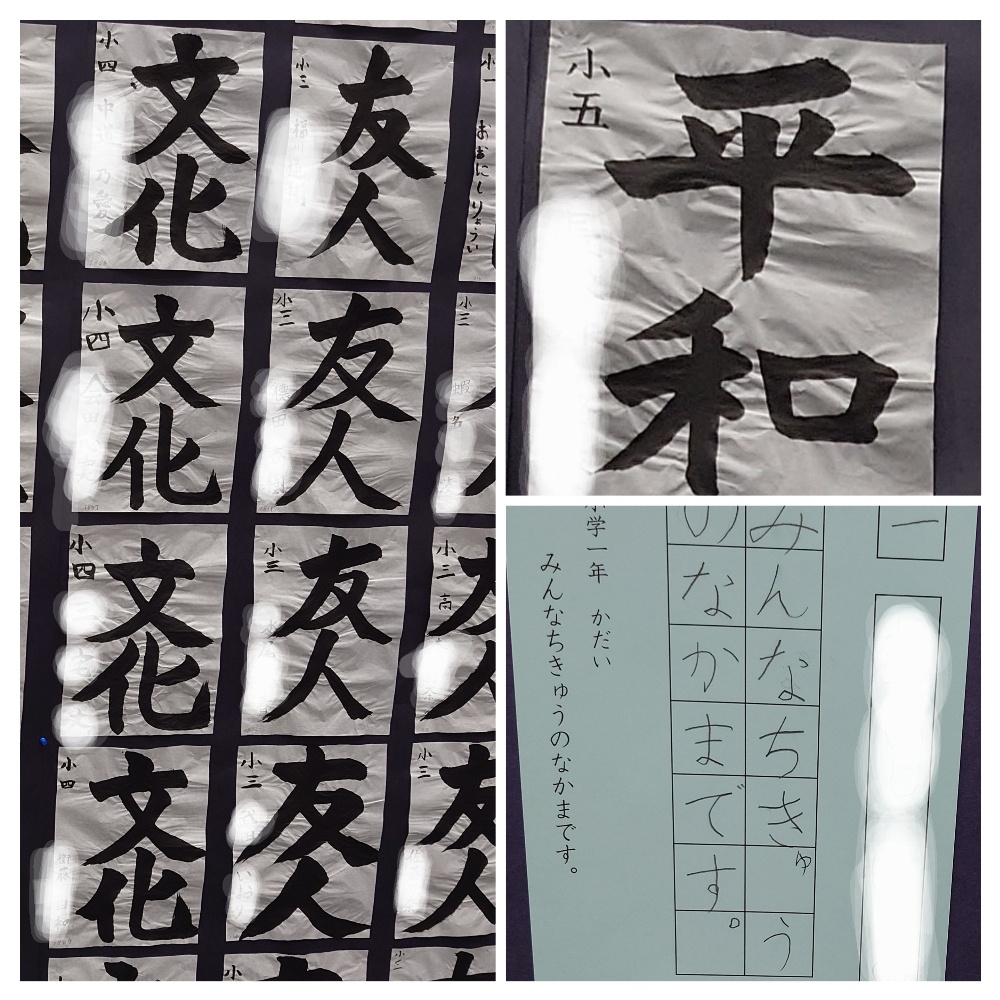 小四
文化
小三
友人
おおにしりょうい
小四
文化
小三
友人
小三
小四
文化
小三
友人
小三
高
小四
文化
小三
友人
小三
小五
平和
一
みんなちきゅう
のなかまです。
小学一年 かだい
みんなちきゅうのなかまです。